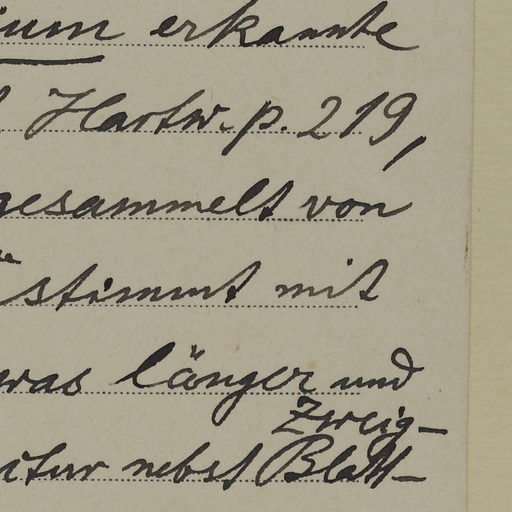 ium erkannte
Hartw. p. 219,
gesammelt von
stimmt mit
was länger und
Zweig-
ctur nebst Blatt-